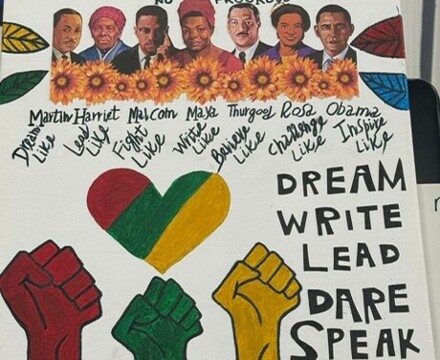 NO PROGRESS
Martin Harriet Malcom Maya Thurgood Rosa Obama
Dream Like Lead Like Fight Like Write Like Believe Like Challenge Like Inspire Like
DREAM
WRITE
LEAD
DARE
SPEAK